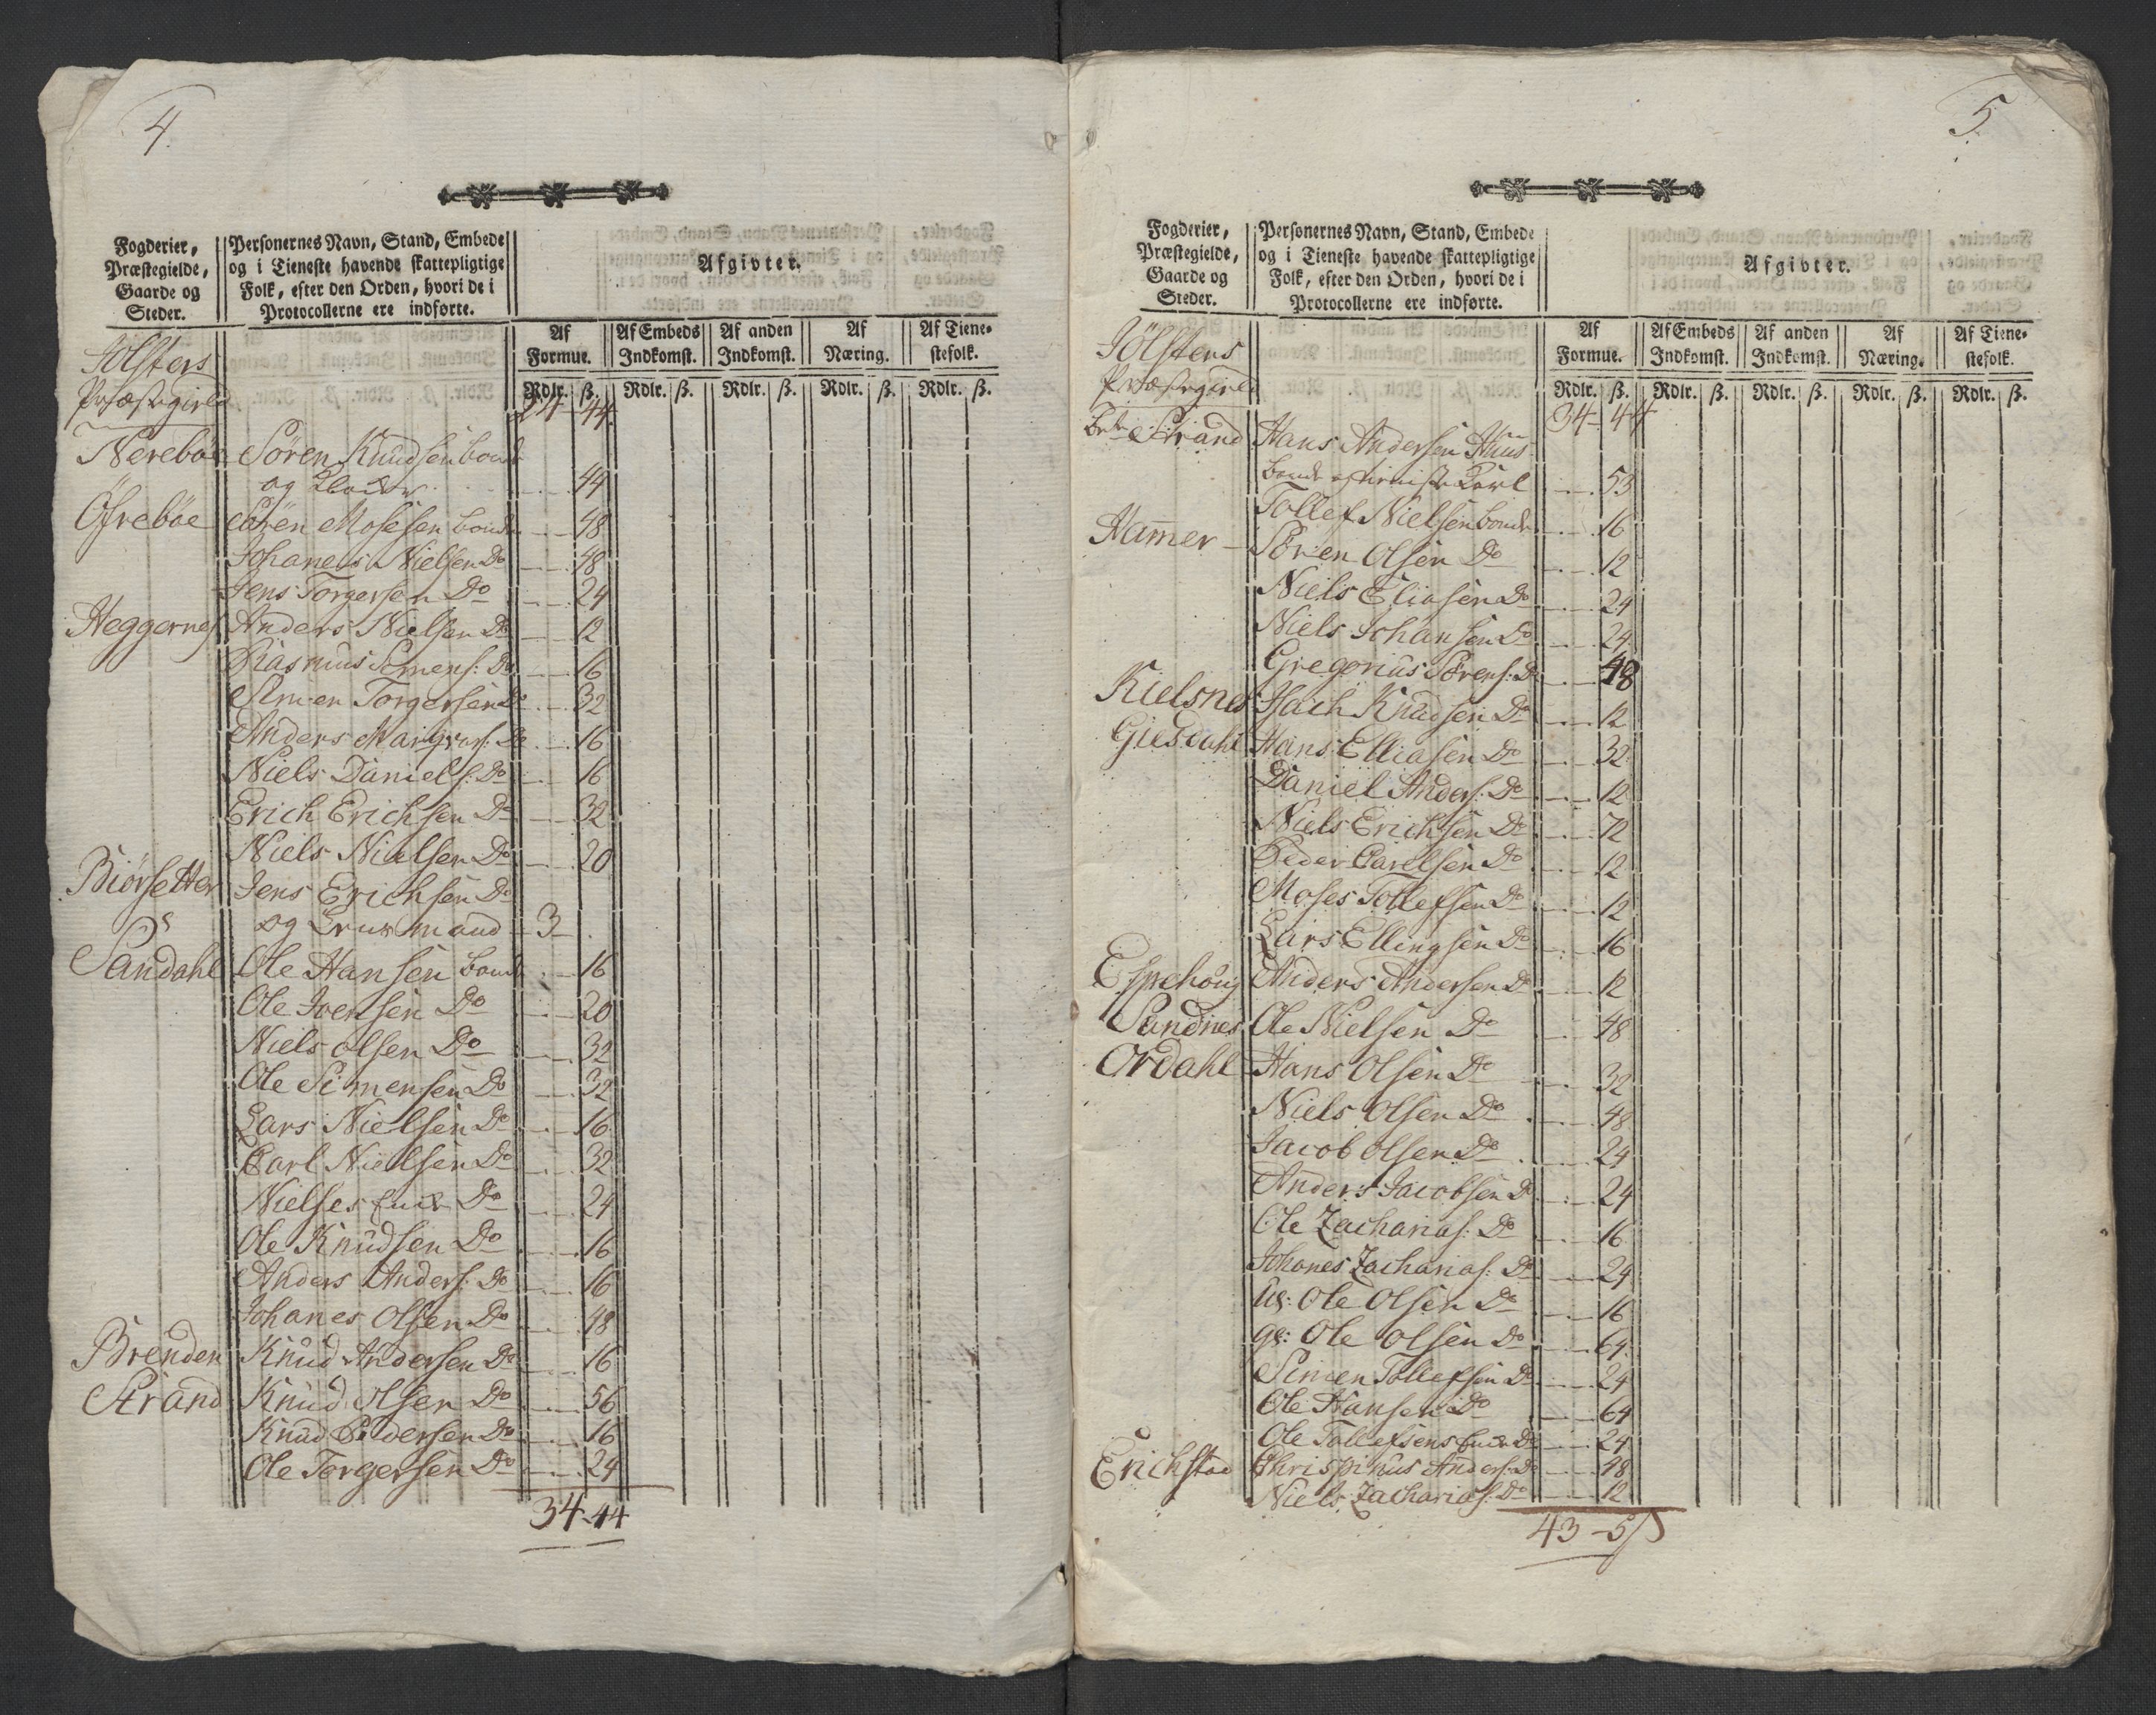 4.
Fogderier,
Præstegielde,
Gaarde og
Steder.
Personernes Navn, Stand, Embede
og i Tieneste havende skattepligtige
Folk, efter den Orden, hvori de i
Protocollerne ere indførte.
Afgivter.
Af Formue. Af Embeds Indkomst. Af anden Indkomst. Af Næring. Af Tienestefolk.
Rdlr. ß. Rdlr. ß. Rdlr. ß. Rdlr. ß. Rdlr. ß.
Jölsters
Præstegield 24 44.
Nerebøe Sören Knudsen bonde
og 44
Öfrebøe Sören Mosesen bonde 48
Johanes Nielsen Do 48
Jens Torgersen Do 24
Heggernes Anders Nielsen Do 12
Rasmus Simens: Do 16
Simen Torgersen Do 32
Anders Do 16
Niels Daniels: Do 16
Erich Erichsen Do 32
Niels Nielsen Do 20
Biörsetter Jens Erichsen Do
og mand 3
Sandahl Ole Hansen bonde 16
Ole Ivensen Do 20
Niels olsen Do 32
Ole Simensen Do 32
Lars Nielsen Do 16
Carl Nielsen Do 32
Nielses Enke Do 24
Ole Knudsen Do 16
Anders Anders: Do 16
Johanes Olsen Do 48
Brenden Knud Andersen Do 16
Strand Knud Olsen Do 56
Knud Pedersen Do 16
Ole Torgersen Do 24
34-44
5.
Fogderier,
Præstegielde,
Gaarde og
Steder.
Personernes Navn, Stand, Embede
og i Tieneste havende skattepligtige
Folk, efter den Orden, hvori de i
Protocollerne ere indførte.
Afgivter.
Af Formue. Af Embeds Indkomst. Af anden Indkomst. Af Næring. Af Tienestefolk.
Rdlr. ß. Rdlr. ß. Rdlr. ß. Rdlr. ß. Rdlr. ß.
Jölsters
Præstegield 34-44
Strand Hans Andersen Huus
bonde og Karl 53
Tollef Nielsen bonde 16
Hamer Sören Olsen Do 12
Niels Eliasen Do 24
Niels Johansen Do 24
Gregorius Sörens: Do 48
Kielsnes Isach Knudsen Do 12
Giesdahl Hans Elliasen Do 32
Daniel Anders: Do 12
Niels Erichsen Do 72
Peder Carelsen Do 12
Moses Tollefsen Do 12
Lars Ellingsen Do 16
Espehoug Anders Andersen Do 12
Sandnes Ole Nielsen Do 48
Ordahl Hans Olsen Do 32
Niels Olsen Do 48
Jacob Olsen Do 24
Anders Jacobsen Do 24
Ole Zacharias: Do 16
Johanes Zacharias: Do 24
Ug: Ole Olsen Do 16
gl: Ole olsen Do 64
Simen Tollefsen Do 24
Ole Hansen Do 64
Ole Tollefsens Enke Do 24
Erichstad Chrispinus Anders: Do 48
Niels Zacharias: Do 12
43-5ß